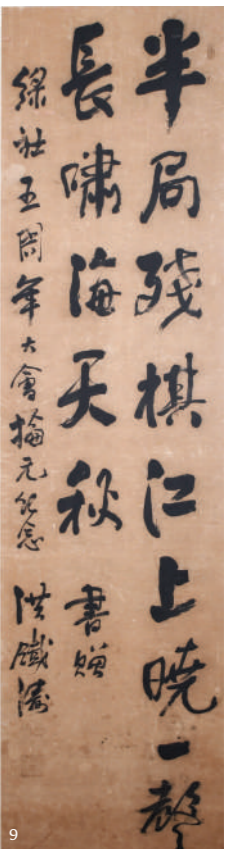 半局殘棋江上曉一聲
長嘯海天秋
書贈
綠社五周年大會掄元紀念
洪鐵濤
9